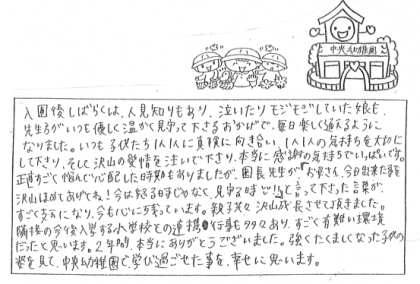 中央幼稚園
入園後しばらくは、人見知りもあり、泣いたりモジモジしていた娘も、
先生方がいつも優しく温かく見守って下さるおかげで、毎日楽しく通えるように
なりました。いつも子供たち1人1人に真検に向き合い、1人1人の気持ちを大切に
して下さり、そして沢山の愛情を注いで下り、本当に感謝の気持ちでいっぱいです。
正直すごく悩んで心配した時期もありましたが、園長先生が「お母さん、今日出来た事を
沢山ほめてあげてね!今は怒る時じゃなく、見守る時」と言って下さった言葉が、
すごく支えになり、今も心に残っています。親子共々沢山成長させて頂きました。
隣接の今後入学する小学校との連携行事も多々あり、すごく有難い環境
だったと思います。2年間、本当にありがとうございました。強くたくましくなった子供の
姿を見て、中央幼稚園で学び過ごせた事を、幸せに思います。